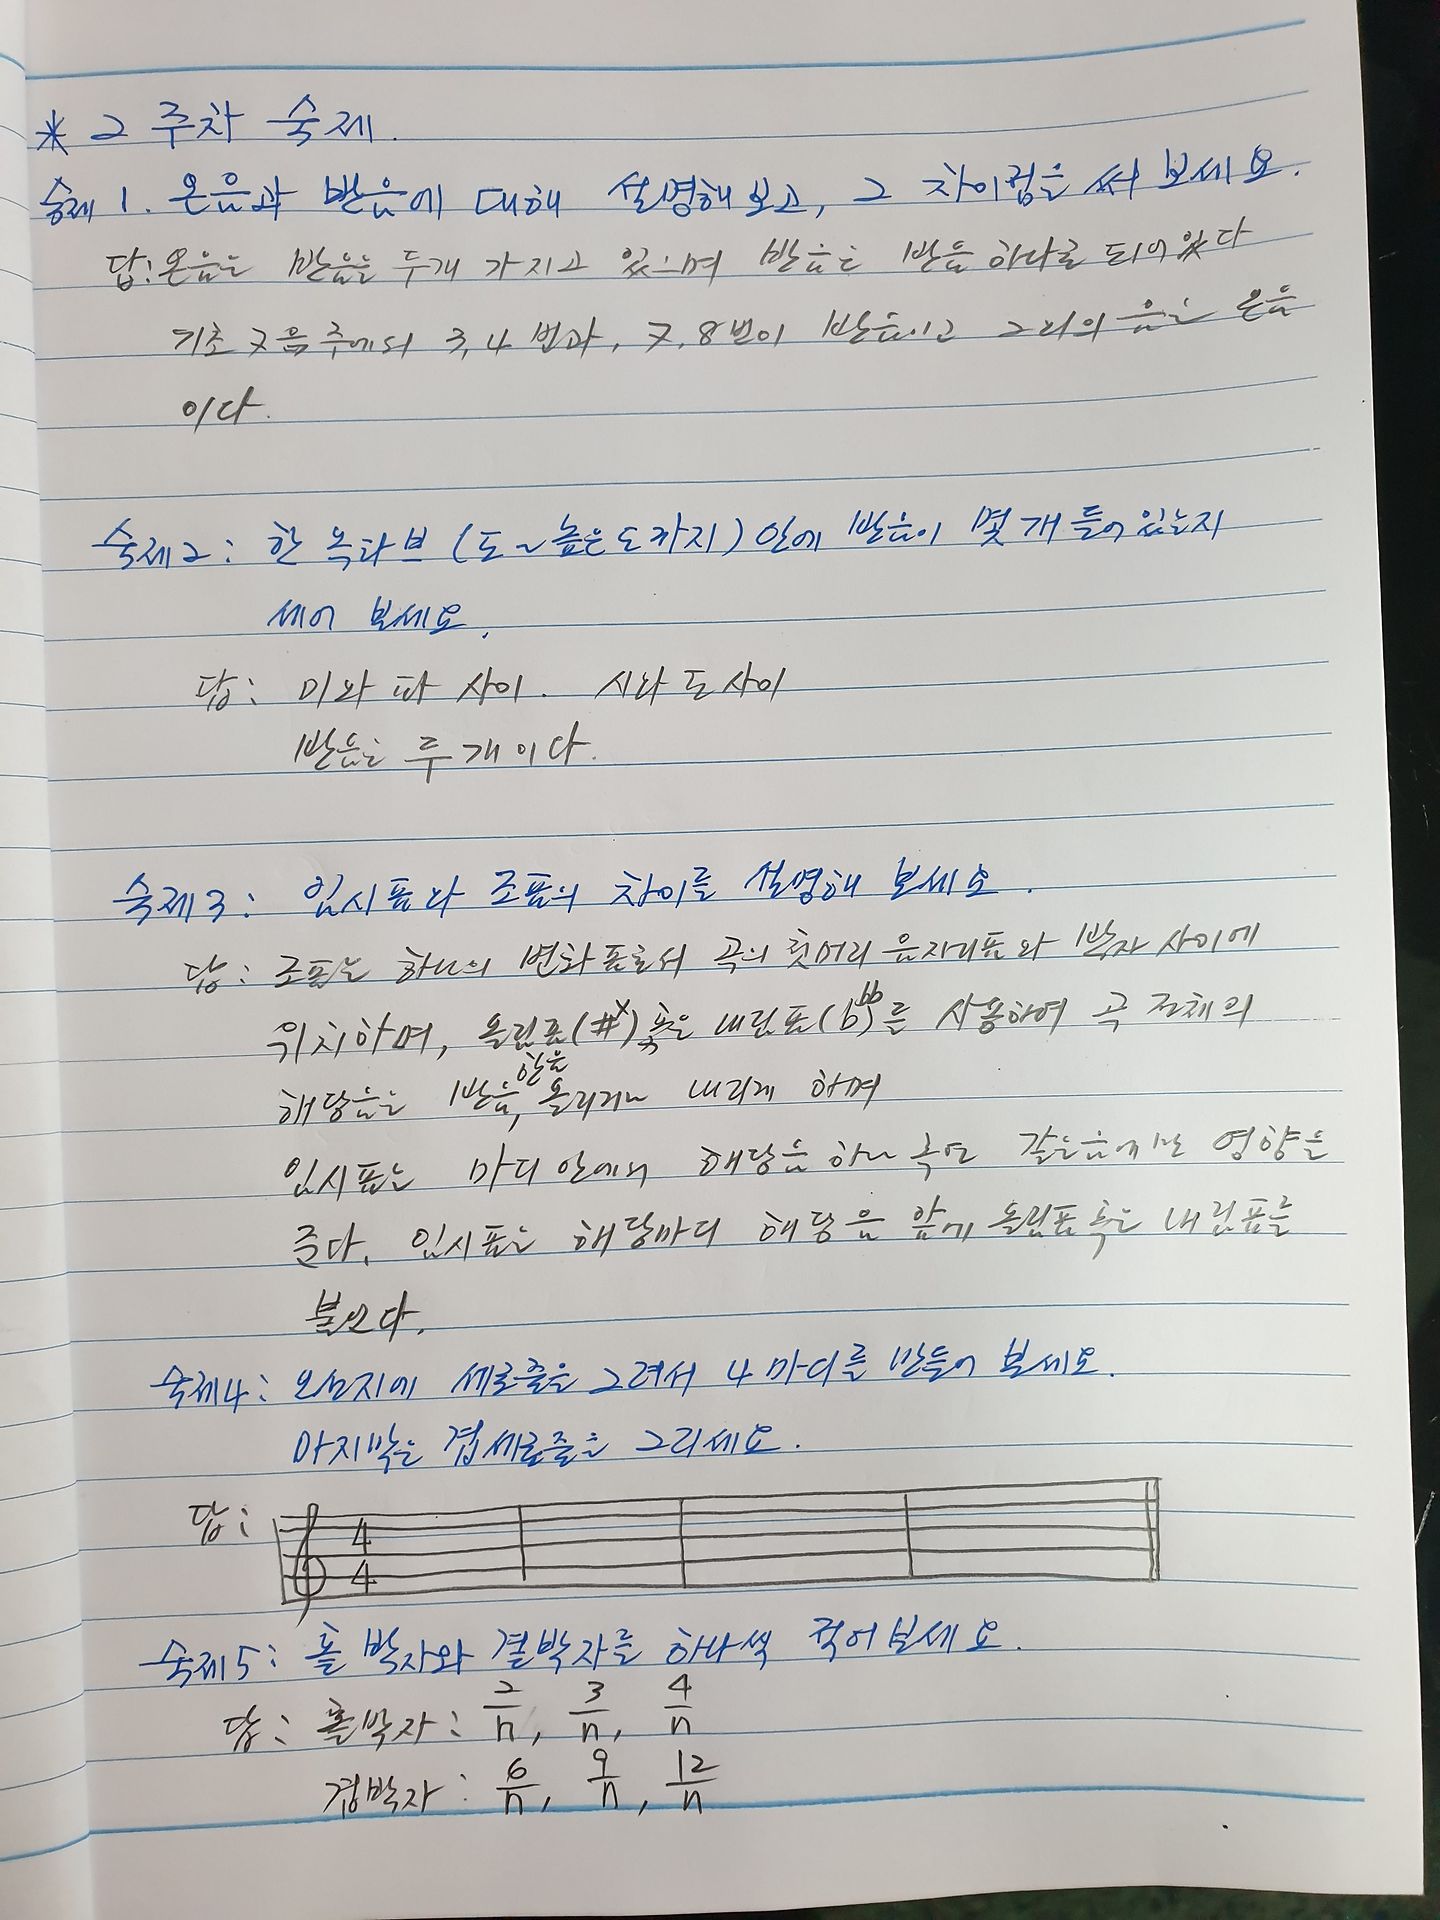 * 2 주차 숙제.
숙제 1. 온음과 반음에 대해 설명해보고, 그 차이점을 써 보세요.
답: 온음은 반음을 두개 가지고 있으며 반음은 반음 하나로 되어있다
기초 7음 중에서 3, 4 번과, 7, 8번이 반음이고 그외의 음은 온음
이다.
숙제2: 한 옥타브 (도~높은도까지) 안에 반음이 몇 개 들어있는지
세어 보세요.
답: 미와 파 사이. 시와 도 사이
반음은 두 개 이다.
숙제3: 임시표와 조표의 차이를 설명해 보세요.
답: 조표는 하나의 변화표로서 곡의 첫머리 음자리표와 박자 사이에
위치하며, 올림표(#x) 혹은 내림표(b bb)를 사용하여 곡 전체의
해당음을 반음, 한음 올리거나 내리게 하며
임시표는 마디안에서 해당음 하나 혹은 같은음에만 영향을
준다. 임시표는 해당마디 해당 음 앞에 올림표 혹은 내림표를
붙인다.
숙제4: 오선지에 세로줄을 그려서 4 마디를 만들어 보세요.
마지막은 겹세로줄을 그리세요.
답:
4
4
숙제5: 홑 박자와 겹박자를 하나씩 적어보세요.
답: 홑박자: 2/n, 3/n, 4/n
겹박자: 6/n, 9/n, 12/n